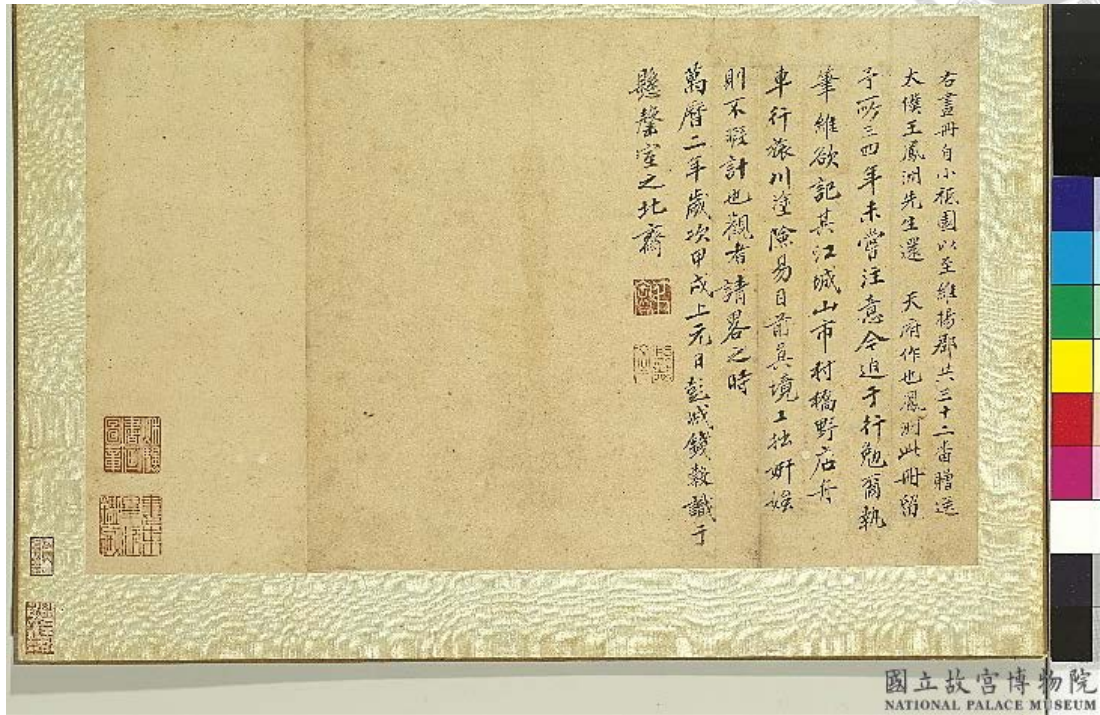 右畫冊自小祗園以至維揚郡共三十二番贈送
太僕王鳳洲先生還 天府作也鳳洲此冊留
予所三四年未嘗注意今迫于行勉爾執
筆維欲記其江城山市村橋野店舟
車行旅川塗險易目前真境工拙妍媸
則不暇計也觀者請畧之時
萬曆二年歲次甲戌上元日彭城錢穀識于
懸罄室之北齋
國立故宮博物院
NATIONAL PALACE MUSEUM